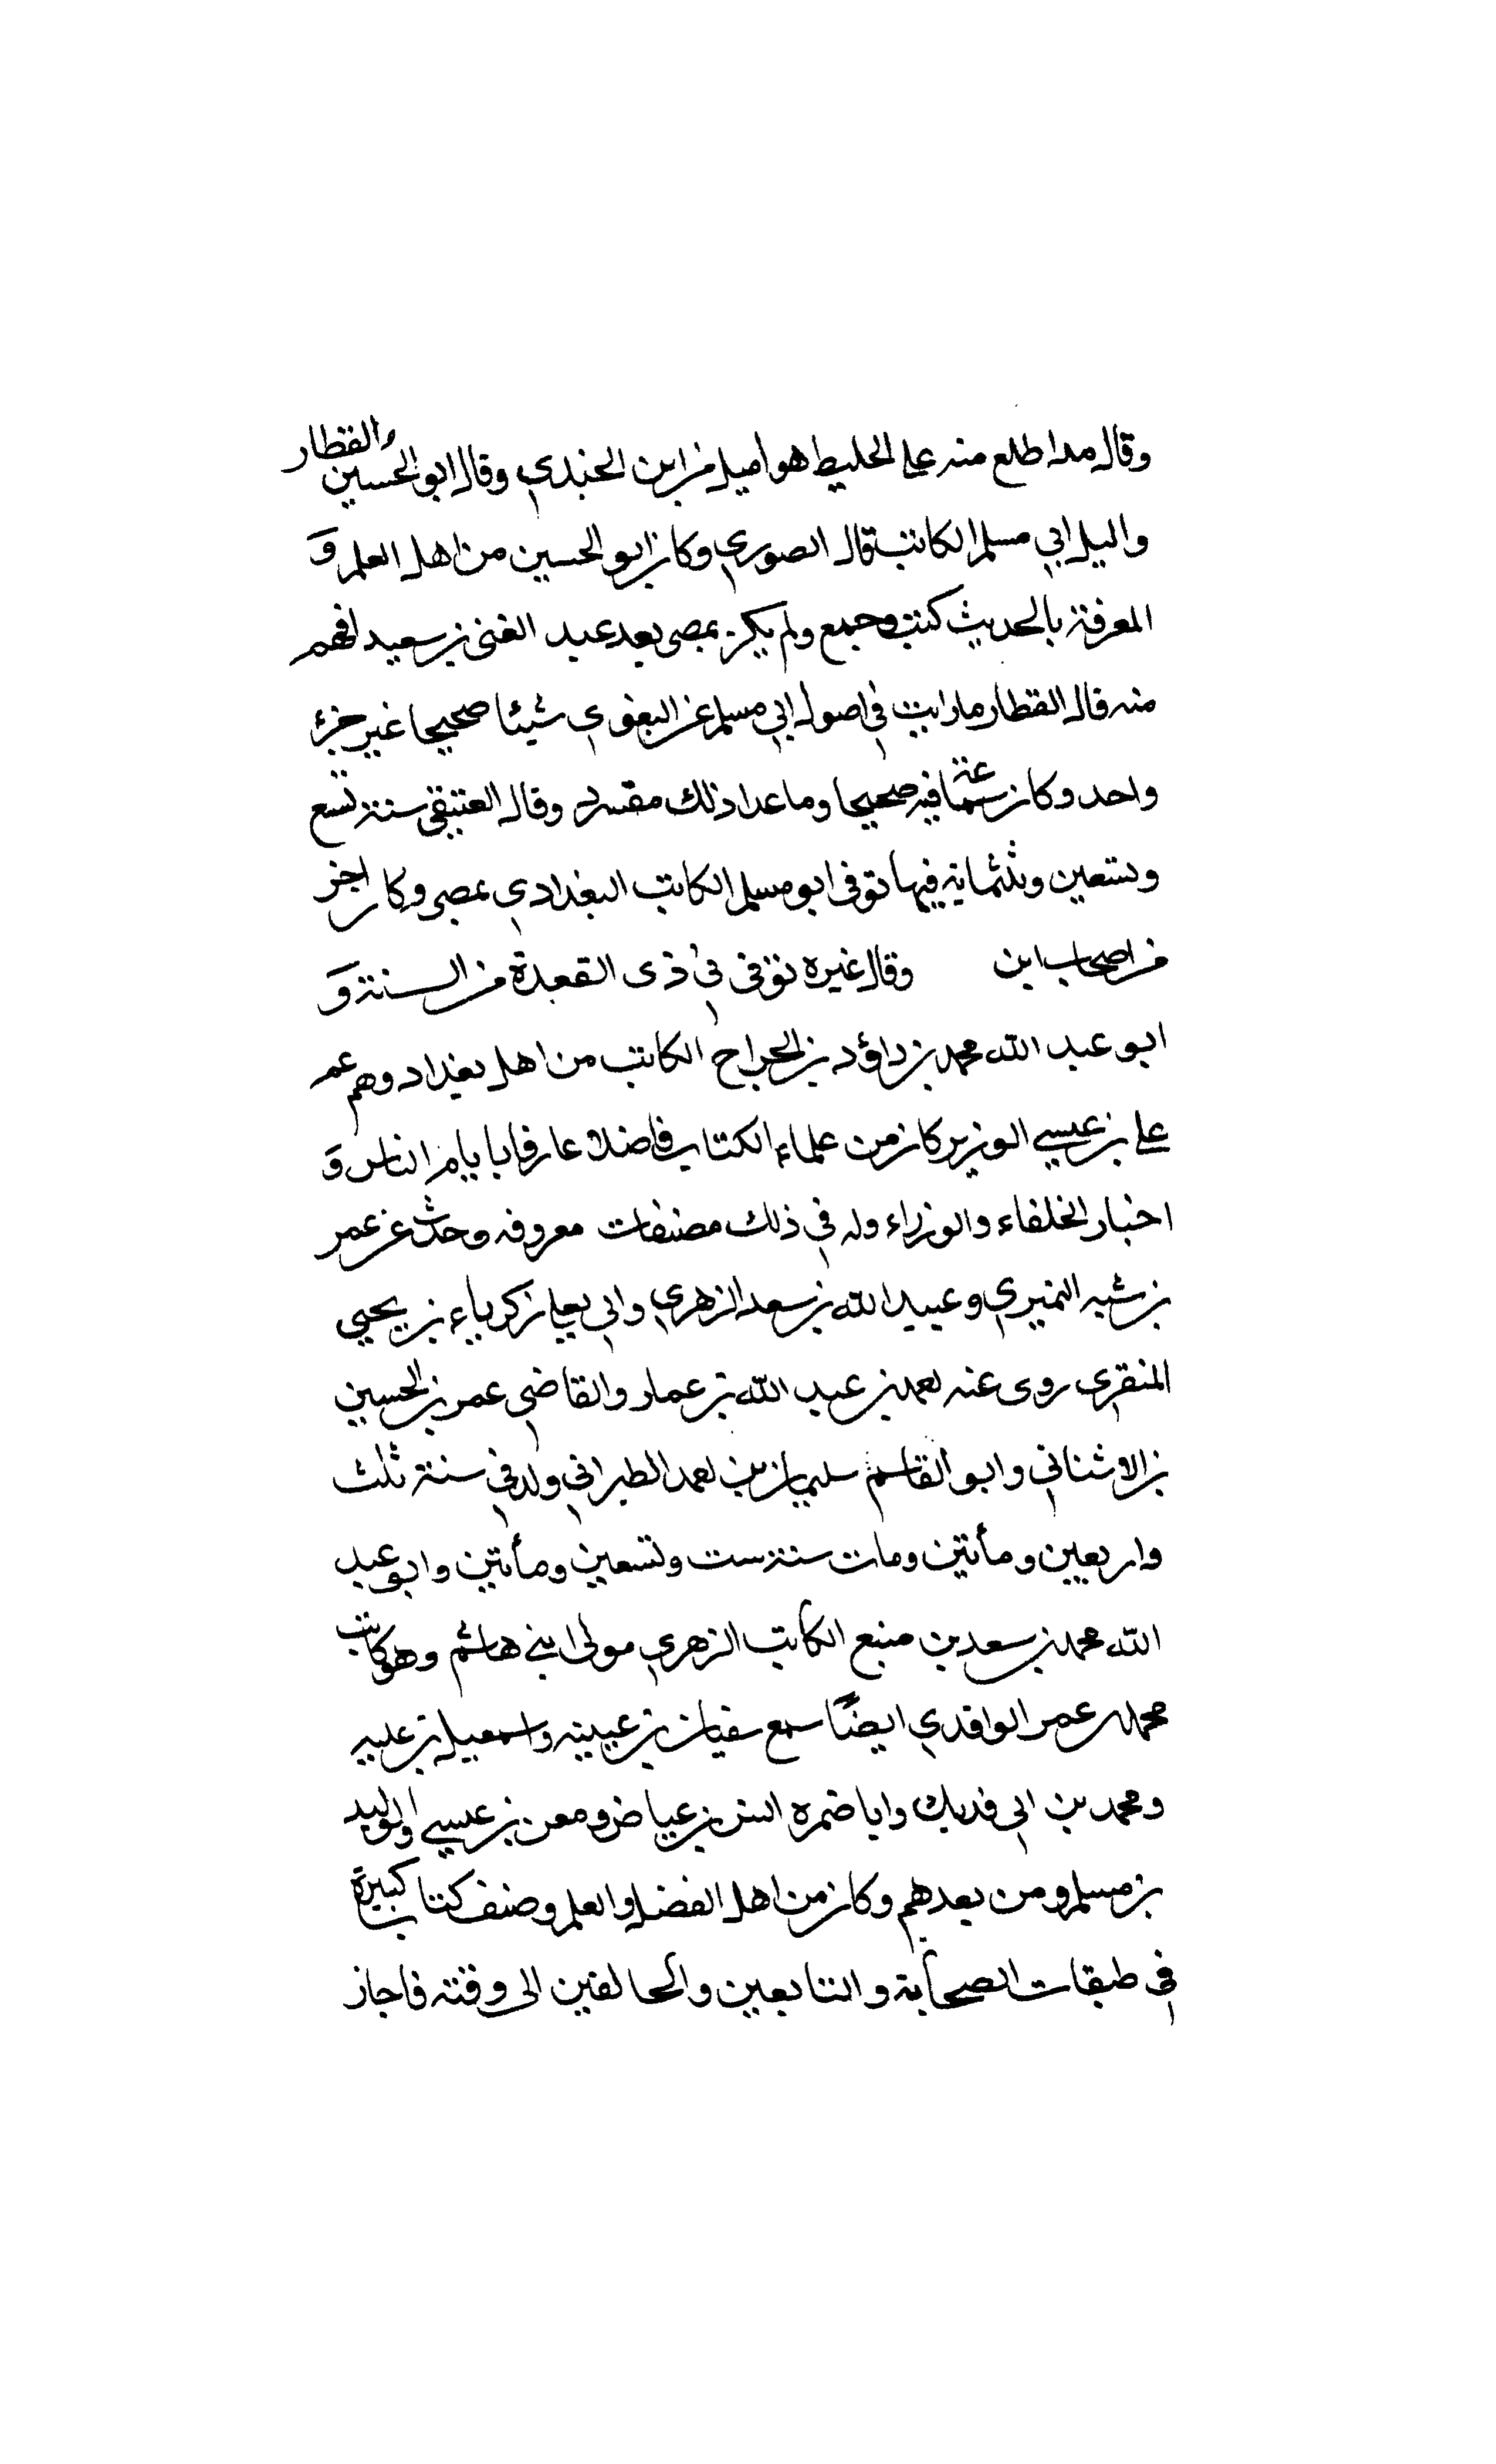 وقال مد اطلع منه على الخليط هو اميل من ابن الجندي وقال ابو الحسين والقطار
والیل ابي مسلم الكاتب قال الصوري وكان ابو الحسين من اهل العلم و
المعرفة بالحديث كتب وجمع ولم يكن بمصر بعد عبد الغنى بن سعيد افهم
منه قال القطار ما رايت في اصول ابي مسلم عن البغوي شيئا صحيحا غير جزئ
واحد وكان سماعته فيه صحيحا وما عدا ذلك مفسد وقال العتيقي سنة تسع
وتسعين وثلثمائة فيها توفى ابو مسلم الكاتب البغدادي بمصر وكان اخر
من اصحاب ابن وقال غيره توفى في ذى القعدة من السنة و
ابو عبد الله محمد بن داؤد بن الجراح الكاتب من اهل بغداد وهم عم
على بن عيسى الوزير كان من علماء الكتاب فاضلا عارفا بايام الناس و
اخبار الخلفاء والوزراء وله في ذلك مصنفات معروفه وحدث عن عمر
بن شبه النميري وعبيد الله بن سعد الزهري وابي يعلى زكرياء بن يحيى
المنقري روى عنه احمد بن عبد الله بن عمار والقاضي عمر بن الحسين
بن الاشناني وابو القاسم سليمان بن احمد الطبراني ولد في سنة ثلث
واربعين ومأتين ومات سنة ست وتسعين ومأتين وابو عبد
الله محمد بن سعد بن منيع الكاتب الزهري مولى بني هاشم وهو كاتب
محمد بن عمر الواقدي ايضًا سمع سفيان بن عيينه واسمعيل بن عليه
ومحمد بن ابى فديك وابا ضمره انس بن عياض ومعن بن عيسى والوليد
بن مسلم ومن بعدهم وكان من اهل الفضل والعلم وصنف كتاب كبيرة
في طبقات الصحابة والتابعين والحالفين الى وقته فاجاز